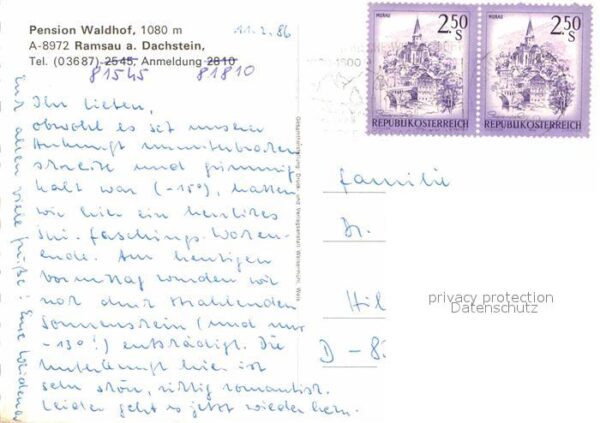 Pension Waldhof, 1080 m
A-8972 Ramsau a. Dachstein,
Tel. (03687) 2545, Anmeldung 2810
81545 81810
11.2.86
Ihr Lieben,
obwohl es seit unserer
Ankunft ununterbrochen
schneite und grimmig
kalt war (-15°), hatten
wir hier ein herrliches
Ski-Faschings-Wochen-
ende. Am heutigen
Vormittag wurden wir
noch durch strahlenden
Sonnenschein (und nur
-13°!) entschädigt. Die
Unterkunft hier ist
sehr schön, richtig romantisch.
Leider geht es jetzt wieder heim.
Euch allen viele Grüße! Eure
Gesamtherstellung: Druck- und Verlagsanstalt Welsermühl, Wels
MURAU
2.50 S
REPUBLIK ÖSTERREICH
MURAU
2.50 S
REPUBLIK ÖSTERREICH
Familie
Dr.
Hil
D - 8
privacy protection
Datenschutz